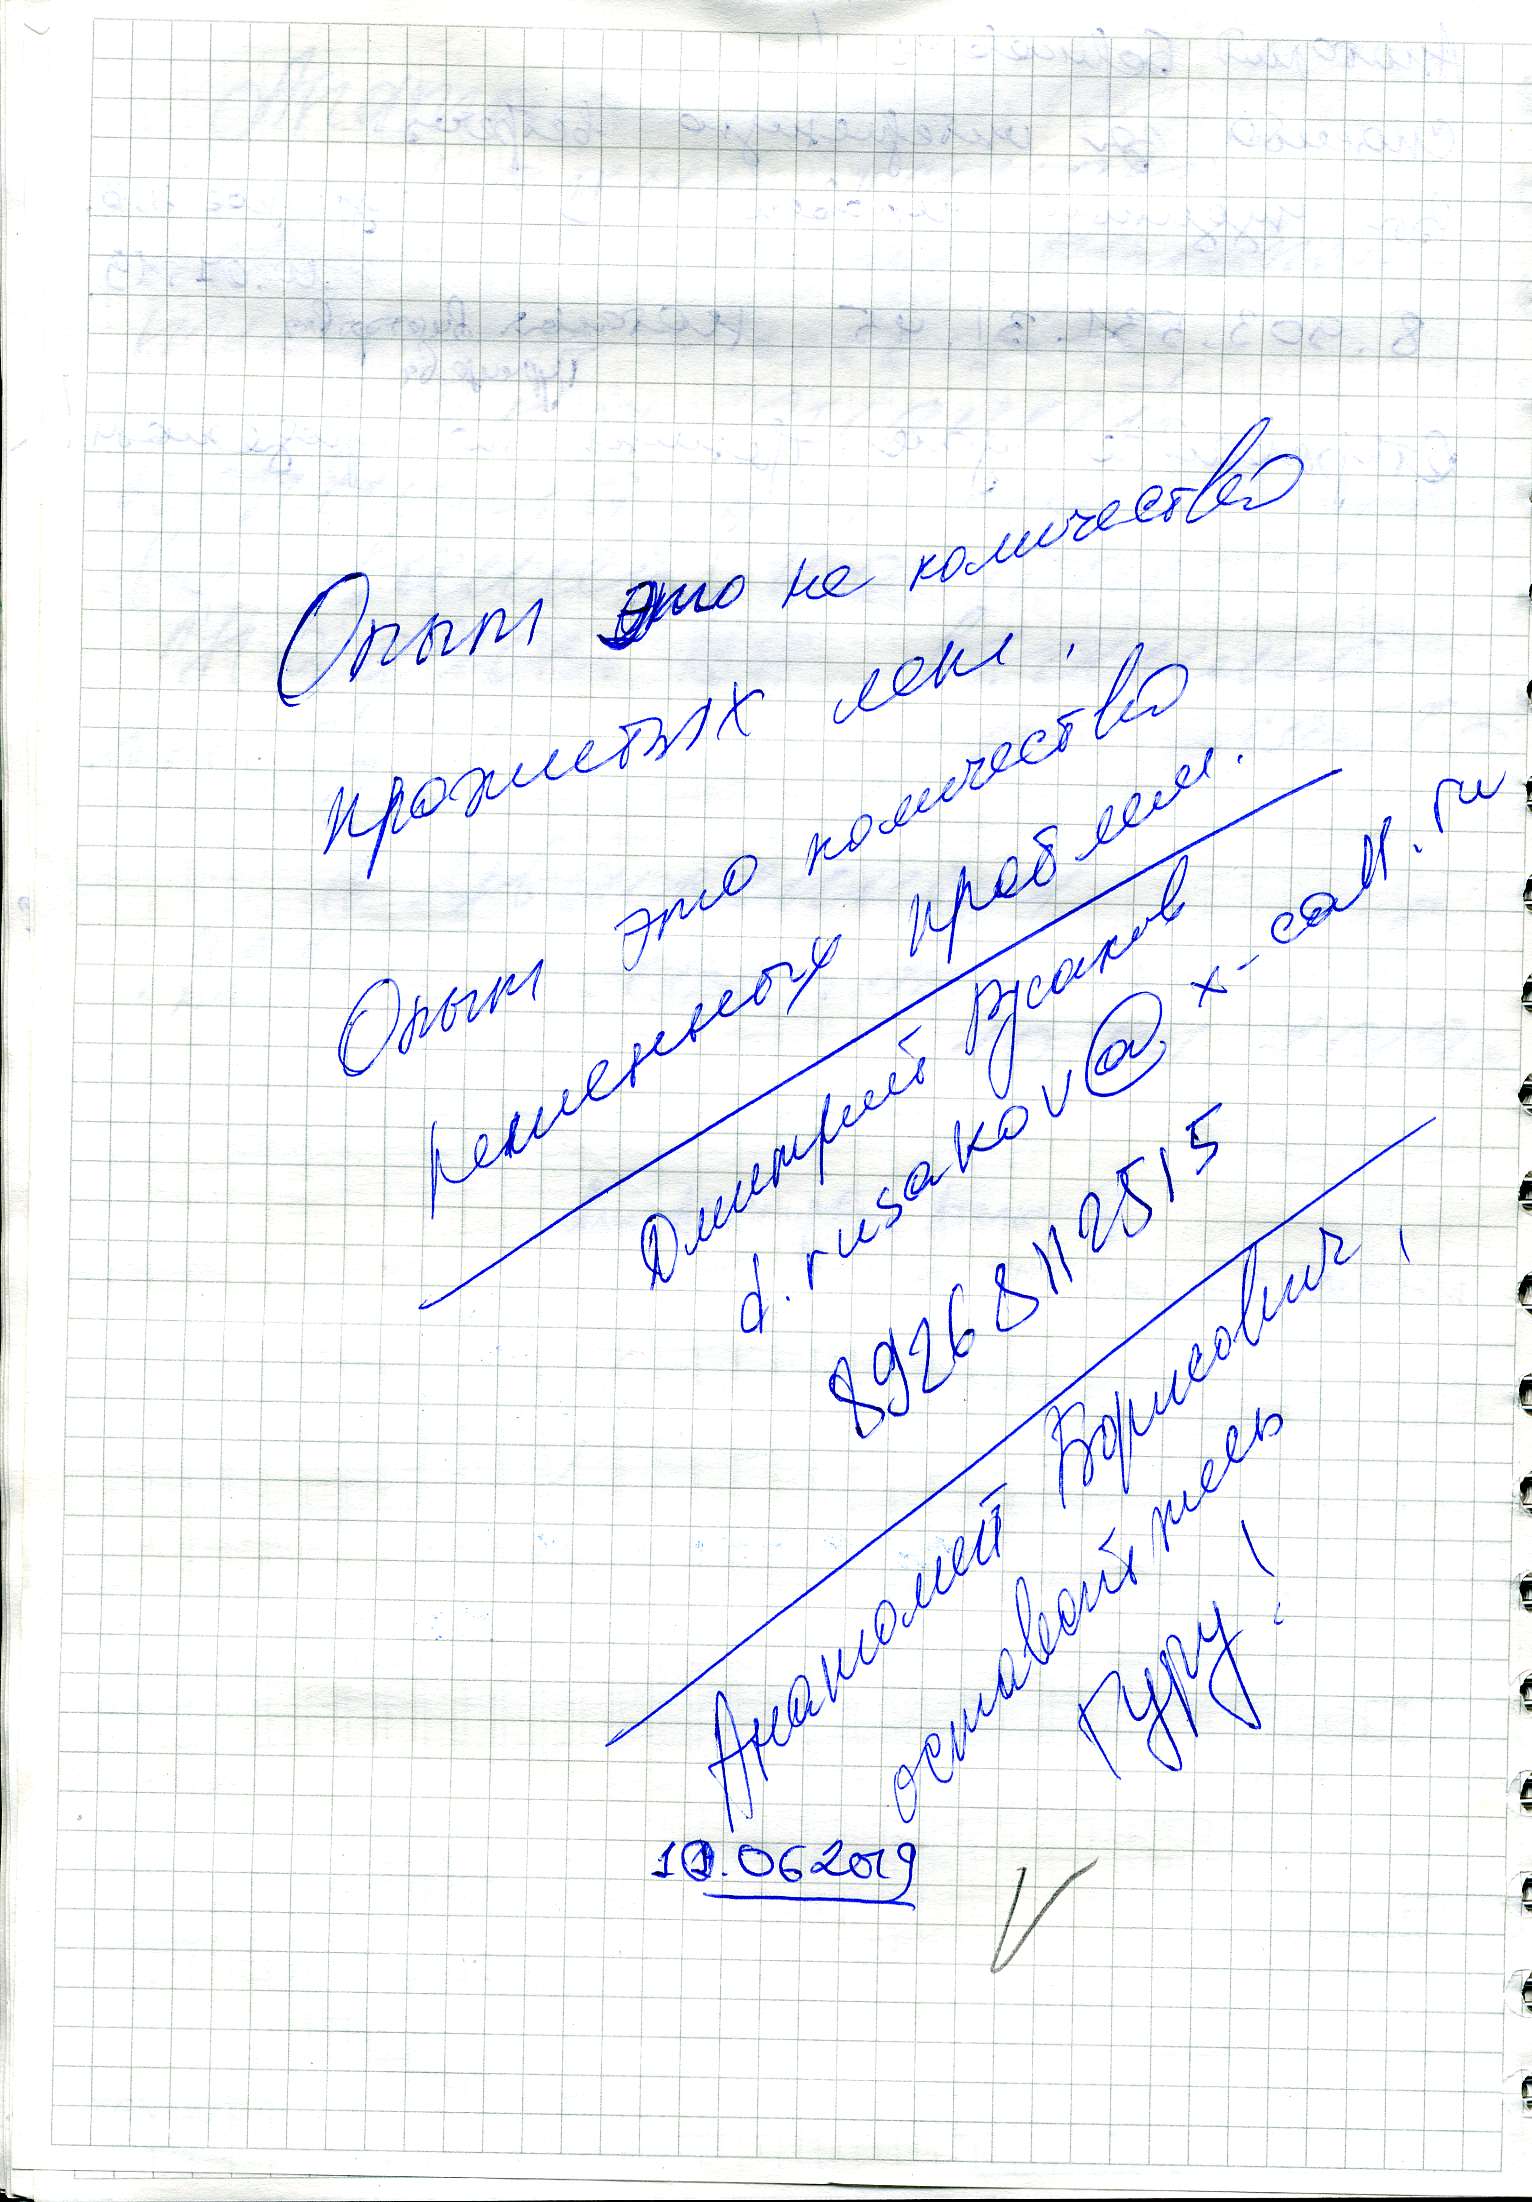 Опыт это не количество
прожитых лет,
Опыт это количество
решенных проблем.
Дмитрий Русаков
d.rusakov@x-call.ru
89268112515
Анатолий Борисович,
оставайтесь
Гуру!
10.062019